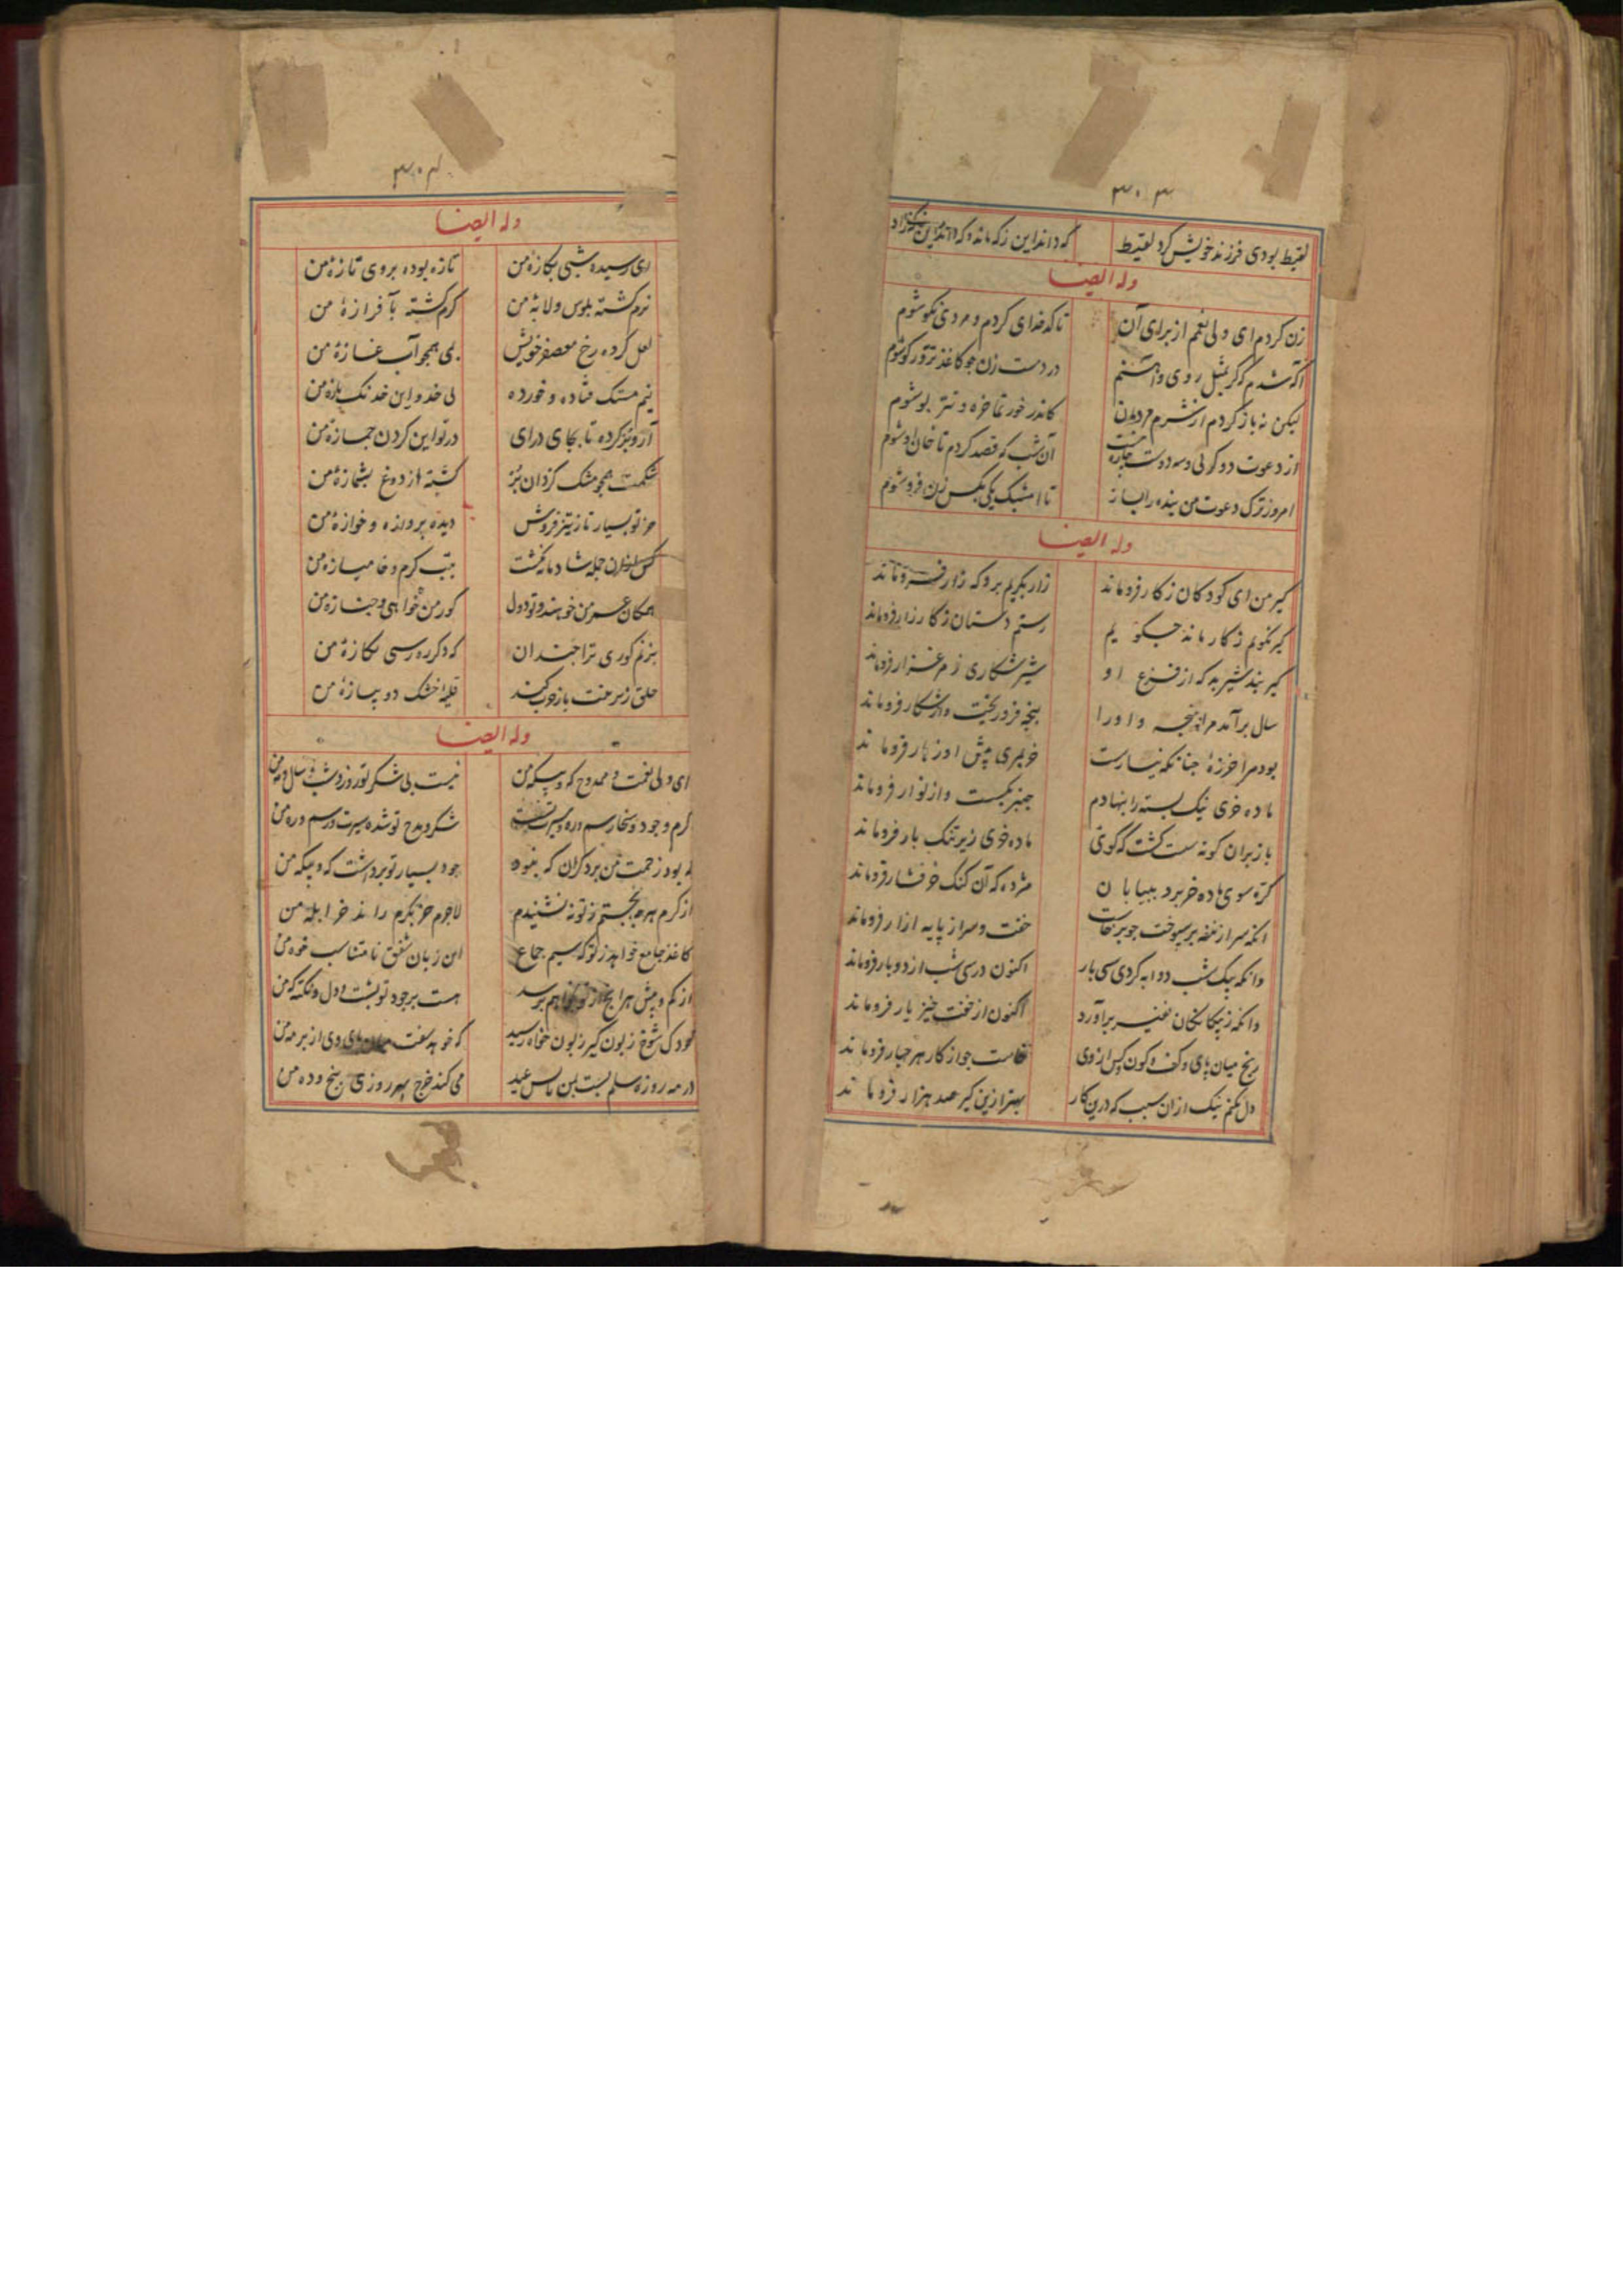 ۳۰۳
لقیط بودی فرزند خویش کرد لقیط که داند این زکه ماند و که داند این زکه زاد
وله ایضا
زن کردم ای ولی نعم از برای آن تا کدخدای کردم و مردی نکو شوم
اکه شدم که کر بمثل روی واهنم در دست زن جو کاغذ تزویر کو شوم
لیکن نه باز کردم از شرم مردمان کاندر خور تماخره و تیتر بو شوم
از دعوت دو کولی و سه دوست جاره نیست آن شب که قصد کردم تا خان او شوم
امروز ترک دعوت من بنده را بساز تا امشبک یکی بکس زن فرو شوم
وله ایضا
کیر من ای کودکان ز کار فروماند زار بکریم برو که زار فروماند
کیر نکویم ز کار ماند جکویم رستم دستان ز کارزار فروماند
کیر نبد شیر بد که از فزع او شیر شکاری ز مرغزار فروماند
سال برآمد مرا به پنجه و او را پنجه فرو ریخت وز شکار فروماند
بود مرا خرزهٔ جنانکه نیارست خر بسری پیش او ز هار فروماند
ماده خری نیک بسته را بنهادم جنبر بکسست و از نوار فروماند
باز بران کونه سست کشت که کوئی ماده خری زیر تنک بار فروماند
کره سوی ماده خر برد ببیابان مژده که آن کنک خر فشار فروماند
انکه سر از نیفه بر بسوخت جو برخاست خفت و سر از پایه ازار فروماند
وانکه بیک شب دوابه کردی سی بار اکنون در سی شب از دو بار فروماند
وانکه زبیکانکان نفیر برآورد اکنون از خفت خیز یار فروماند
رنج میان پای و کف و کون پس از وی خاست جو از کار هر جهار فروماند
دل نکنم نیک از ان سبب که درین کار بهتر ازین کیر صد هزار فروماند
۳۰۴
وله ایضا
ای رسیده شبی بکازهٔ من تازه بوده بروی تازهٔ من
نرم کشته بلوس و لابهٔ من کرم کشته بآفرازهٔ من
لعل کرده رخ معصفر خویش بمی همجو آب غازهٔ من
نیم مستک فتاده و خورده بی خدو این خدنک یازهٔ من
آرزو کرده تا بجای درای در تو این کردن جمازهٔ من
شکمت همجو مشک کردان پر کشته از دوغ بشمازهٔ من
جز تو بسیار تاز تیز فروش دیده پروازه و خوازهٔ من
کس ازان جمله شادمانه نکشت بتب کرم و خامیازهٔ من
همکان عمر من خوهند و تو دول کور من خواهی و جنازهٔ من
بزنم کوری ترا جندان که دکر ره رسی بکازهٔ من
حلق زیر منت باز جوب کند قلیه خشک دو پیازهٔ من
وله ایضا
ای ولی نعمت و ممدوح که و بیکه من نیست بی شکر تو روز و شب و سال و مه من
کرم وجود و سخا رسم و ره و سیرت تست شکر و مدح تو شده سیرت و رسم و ره من
بود زحمت من بر دکران که بنود جود بسیار تو برداشت که و بیکه من
از کرم هرچه بجستم ز تو نه نشنیدم لاجرم جز بکرم راند خر ابله من
کاغذ جامع خواهد ز تو که سیم جماع این زبان شفق نا متناسب خوه من
از کم و بیش هر انج از تو بخواهم برسد هست برجود تو پشت و دل و تکیه که من
کودک شوخ زبون کیر زبون خواه رسید که خوهد سفت میان پای وی از بر مه من
در مه روزه سلم بست بمن تا سر عید می کند خرج بهر روزی پنج و ده من